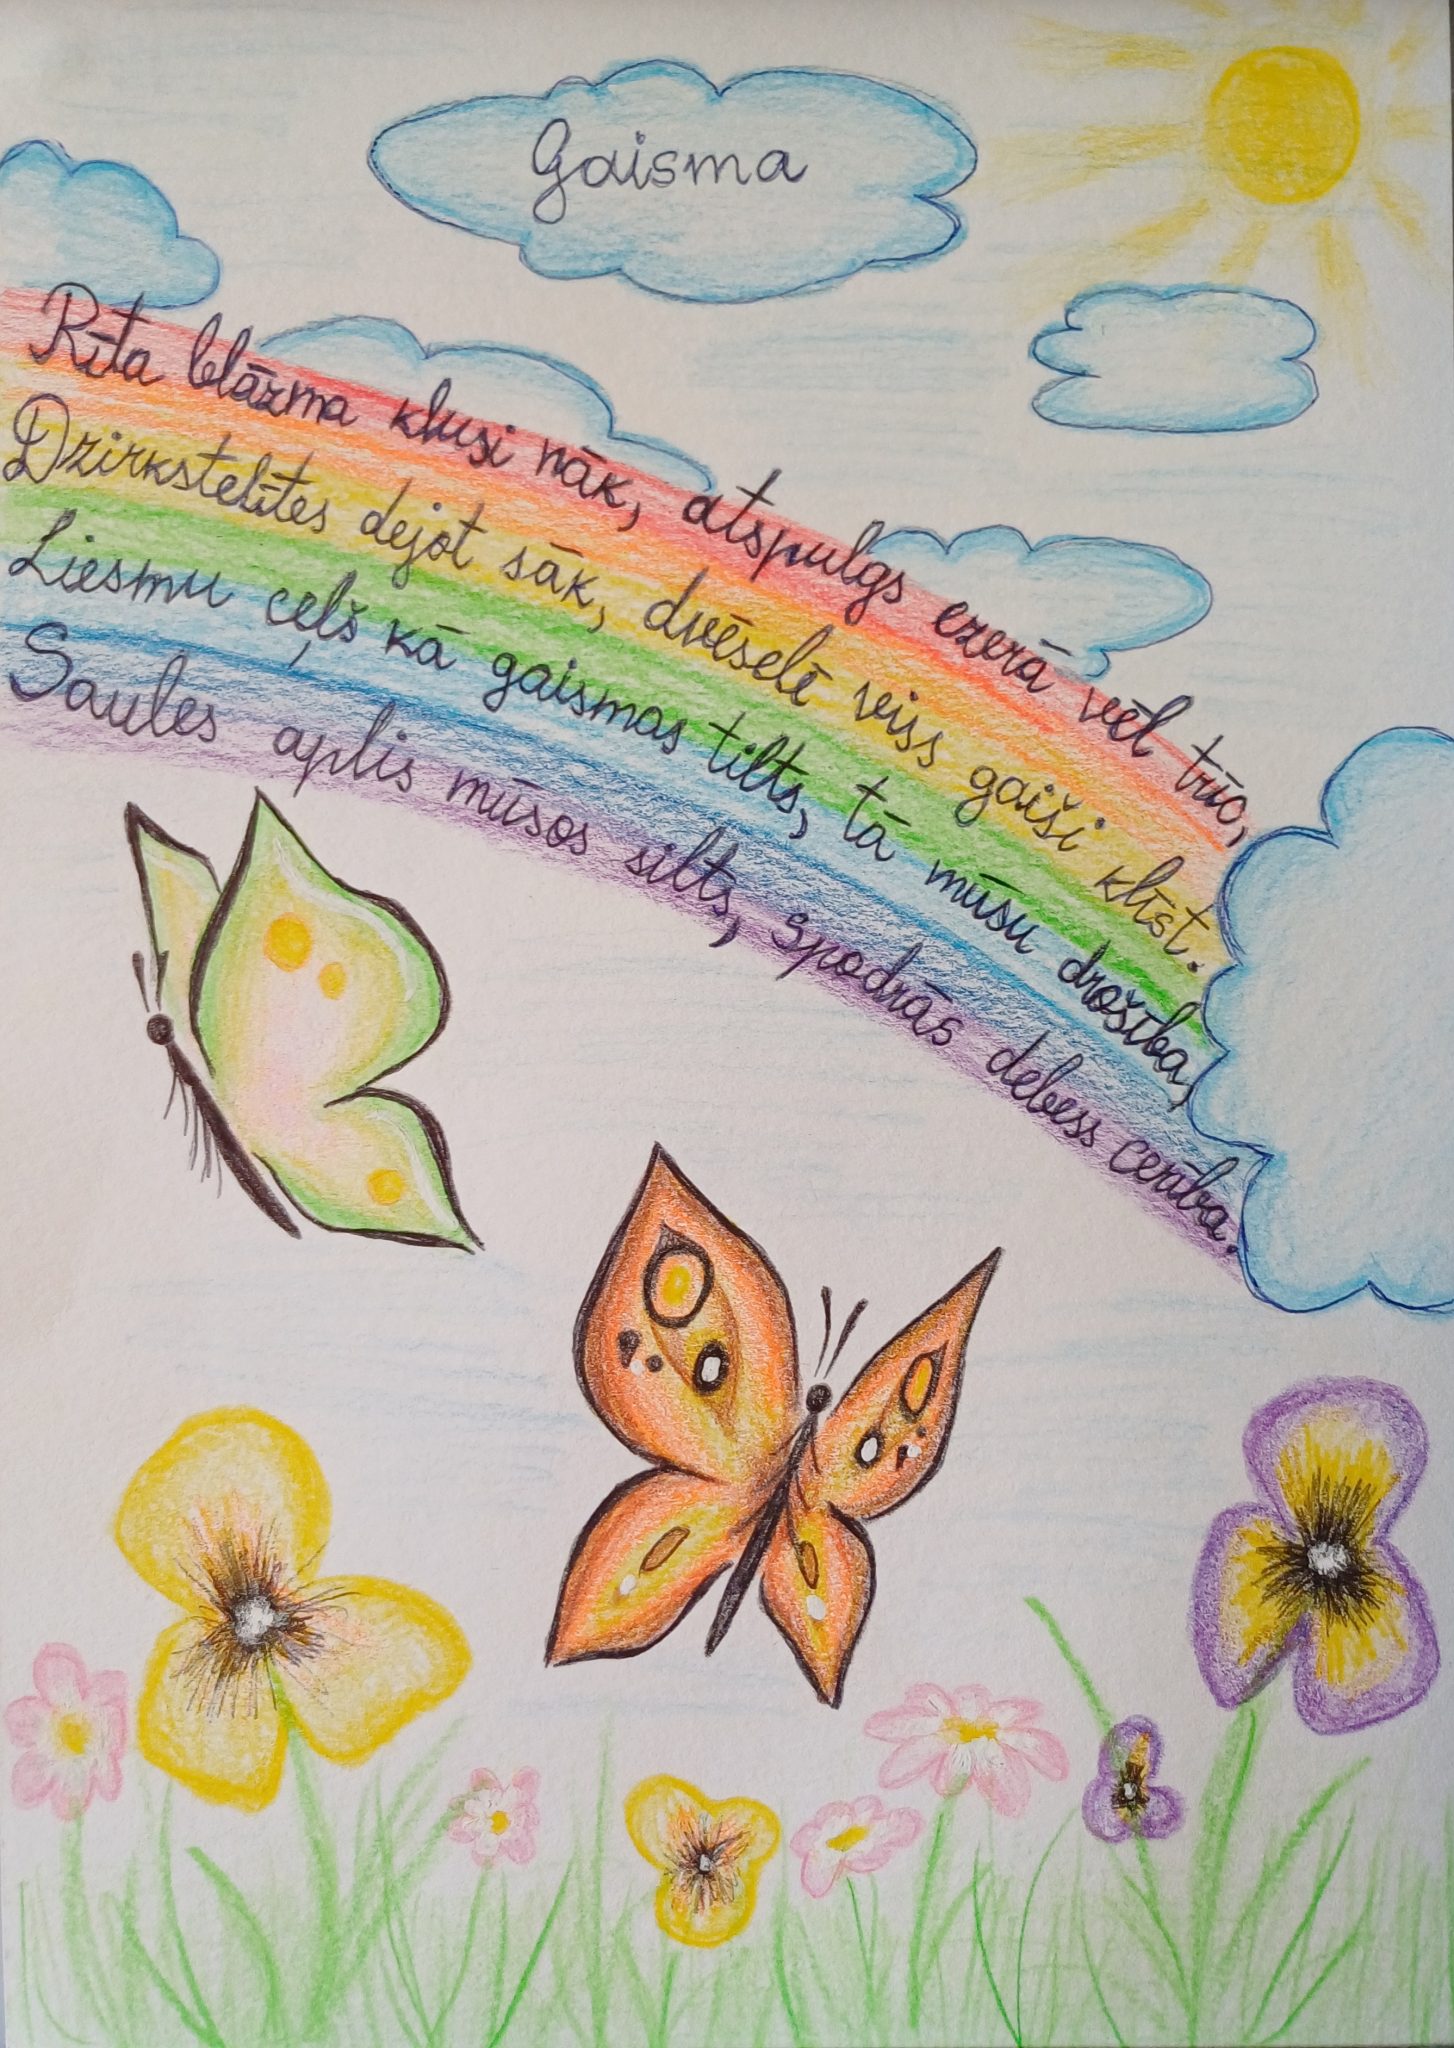 Gaisma
Rīta blāzma klusi nāk, atspulgs ezerā vēl trīo,
Dzirkstelītes dejot sāk, dvēselē viss gaiši klīst.
Liesmu ceļš kā gaismas tilts, tā mūsu drošība,
Saules aplis mūsos silts, spodrās debess cerība.